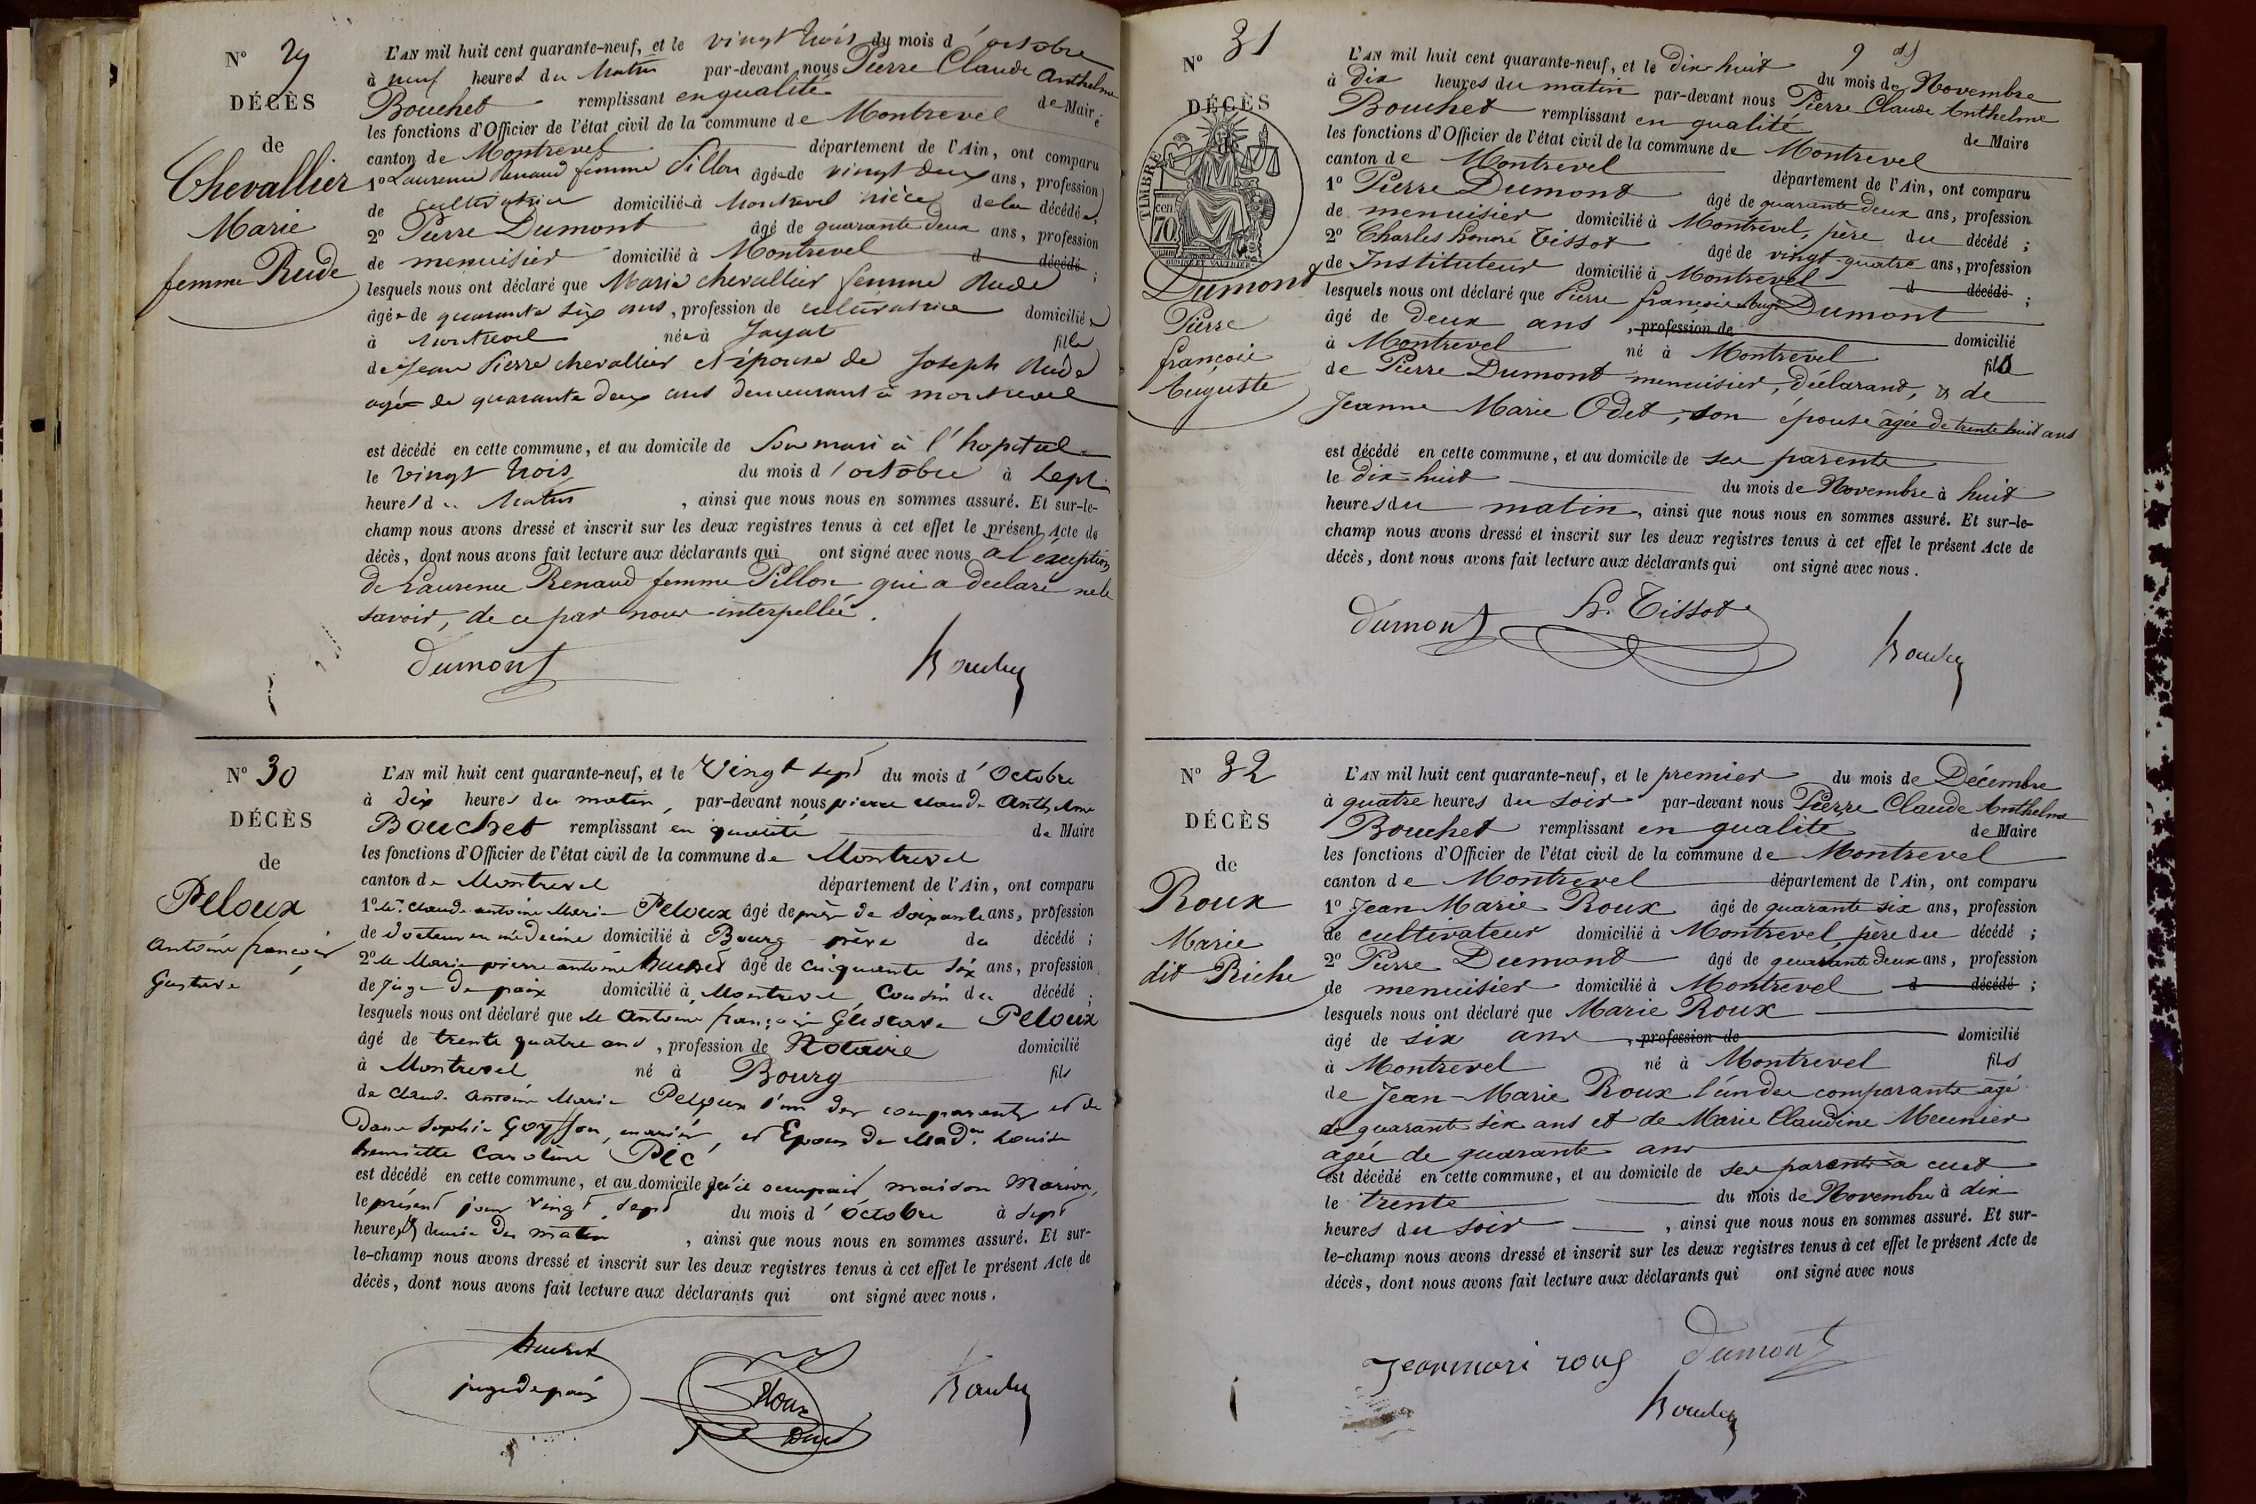 N° 29
DÉCÈS
de
Chevallier
Marie
femme Rude
L'AN mil huit cent quarante-neuf, et le vingt trois du mois d'octobre
à neuf heures du Matin par-devant nous Pierre Claude Anthelme
Bouchet remplissant en qualité de Maire
les fonctions d'Officier de l'état civil de la commune de Montrevel
canton de Montrevel département de l'Ain, ont comparu
1° Laurence Renaud femme Pillon âgée de vingt deux ans, profession
de cultivatrice domiciliée à Montrevel nièce de la décédée,
2° Pierre Dumont âgé de quarante deux ans, profession
de menuisier domicilié à Montrevel d décédé ;
lesquels nous ont déclaré que Marie chevallier femme Rude
âgée de quarante six ans, profession de cultivatrice domiciliée
à Montrevel née à Jayat fille
de Jean Pierre chevallier et épouse de Joseph Rude
agé de quarante deux ans demeurant à montrevel
est décédé en cette commune, et au domicile de son mari à l'hopital
le vingt trois du mois d'octobre à sept
heures du Matin, ainsi que nous nous en sommes assuré. Et sur-le-
champ nous avons dressé et inscrit sur les deux registres tenus à cet effet le présent Acte de
décès, dont nous avons fait lecture aux déclarants qui ont signé avec nous à l'éxception
de Laurence Renaud femme Pillon qui a déclaré ne le
savoir, de ce par nous interpellée.
Dumont Bouchet
N° 30
DÉCÈS
de
Peloux
Antoine françois
Gustave
L'AN mil huit cent quarante-neuf, et le Vingt sept du mois d'Octobre
à dix heures du matin, par-devant nous pierre claude Anthelme
Bouchet remplissant en qualité de Maire
les fonctions d'Officier de l'état civil de la commune de Montrevel
canton de Montrevel département de l'Ain, ont comparu
1° Mr. claude antoine Marie Peloux âgé de près de soixante ans, profession
de docteur en médecine domicilié à Bourg père du décédé ;
2° Mr Marie pierre antoine âgé de cinquante six ans, profession
de juge de paix domicilié à Montrevel, Cousin du décédé ;
lesquels nous ont déclaré que Mr Antoine françois Gustave Peloux
âgé de trente quatre ans, profession de Notaire domicilié
à Montrevel né à Bourg fils
de claude Antoine Marie Peloux l'un des comparants et de
Dame Sophie Goyffon, mariés, et Epoux de Made. Louise
henriette Caroline Pic
est décédé en cette commune, et au domicile qu'il occupait, maison Marion,
le présent jour vingt sept du mois d'Octobre à sept
heures & demie du matin, ainsi que nous nous en sommes assuré. Et sur-
le-champ nous avons dressé et inscrit sur les deux registres tenus à cet effet le présent Acte de
décès, dont nous avons fait lecture aux déclarants qui ont signé avec nous.
juge de paix Peloux Bouchet
N° 31
DÉCÈS
TIMBRE
cen
70
Dumont
Pierre
françois
Auguste
L'AN mil huit cent quarante-neuf, et le dix-huit du mois de Novembre
à dix heures du matin par-devant nous Pierre Claude Anthelme
Bouchet remplissant en qualité de Maire
les fonctions d'Officier de l'état civil de la commune de Montrevel
canton de Montrevel département de l'Ain, ont comparu
1° Pierre Dumont âgé de quarante deux ans, profession
de menuisier domicilié à Montrevel, père du décédé ;
2° Charles honoré Tissot âgé de vingt-quatre ans, profession
de Instituteur domicilié à Montrevel d décédé ;
lesquels nous ont déclaré que Pierre françois Auge Dumont
âgé de deux ans, profession de domicilié
à Montrevel né à Montrevel fils
de Pierre Dumont menuisier, déclarant, & de
Jeanne Marie Odet, son épouse agée de trente huit ans
est décédé en cette commune, et au domicile de ses parents
le dix-huit du mois de Novembre à huit
heures du matin, ainsi que nous nous en sommes assuré. Et sur-le-
champ nous avons dressé et inscrit sur les deux registres tenus à cet effet le présent Acte de
décès, dont nous avons fait lecture aux déclarants qui ont signé avec nous.
Dumont h. Tissot Bouchet
N° 32
DÉCÈS
de
Roux
Marie
dit Riche
L'AN mil huit cent quarante-neuf, et le premier du mois de Décembre
à quatre heures du soir par-devant nous Pierre Claude Anthelme
Bouchet remplissant en qualité de Maire
les fonctions d'Officier de l'état civil de la commune de Montrevel
canton de Montrevel département de l'Ain, ont comparu
1° Jean Marie Roux âgé de quarante six ans, profession
de cultivateur domicilié à Montrevel, père du décédé ;
2° Pierre Dumont âgé de quarante deux ans, profession
de menuisier domicilié à Montrevel d décédé ;
lesquels nous ont déclaré que Marie Roux
âgé de six ans, profession de domicilié
à Montrevel né à Montrevel fils
de Jean-Marie Roux l'un des comparants agé
de quarante six ans et de Marie Claudine Meunier
agée de quarante ans
est décédé en cette commune, et au domicile de ses parents à cuet
le trente du mois de Novembre à dix
heures du soir, ainsi que nous nous en sommes assuré. Et sur-
le-champ nous avons dressé et inscrit sur les deux registres tenus à cet effet le présent Acte de
décès, dont nous avons fait lecture aux déclarants qui ont signé avec nous
Jeanmari roux Dumont
Bouchet